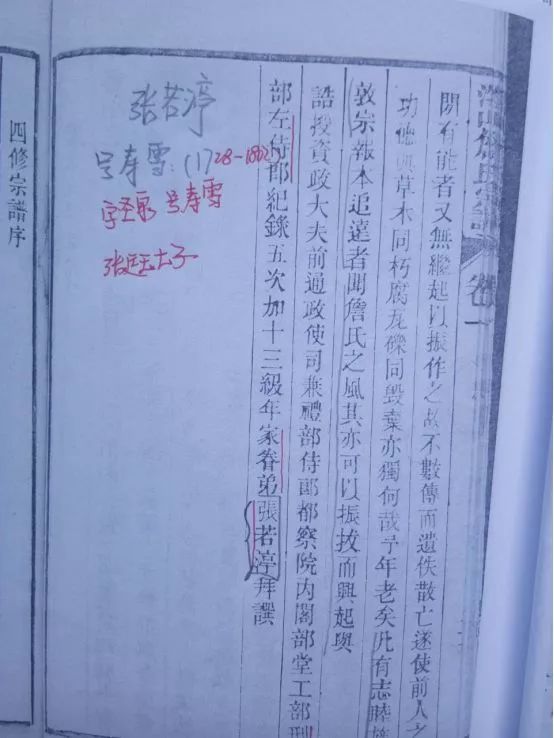 卷一
間有能者又無繼起以振作之故不數傳而遺佚散亡遂使前人之
功德與草木同朽腐瓦礫同毀棄亦獨何哉予年老矣凡有志睦族
敦宗報本追遠者聞詹氏之風其亦可以振拔而興起與
誥授資政大夫前通政使司兼禮部侍郎都察院內閣部堂工部刑
部左侍郎紀錄五次加十三級年家眷弟張若渟拜譔
张若渟
号寿雪:(1728-1802)
字圣泉 号寿雪
张廷玉七子
四修宗譜序